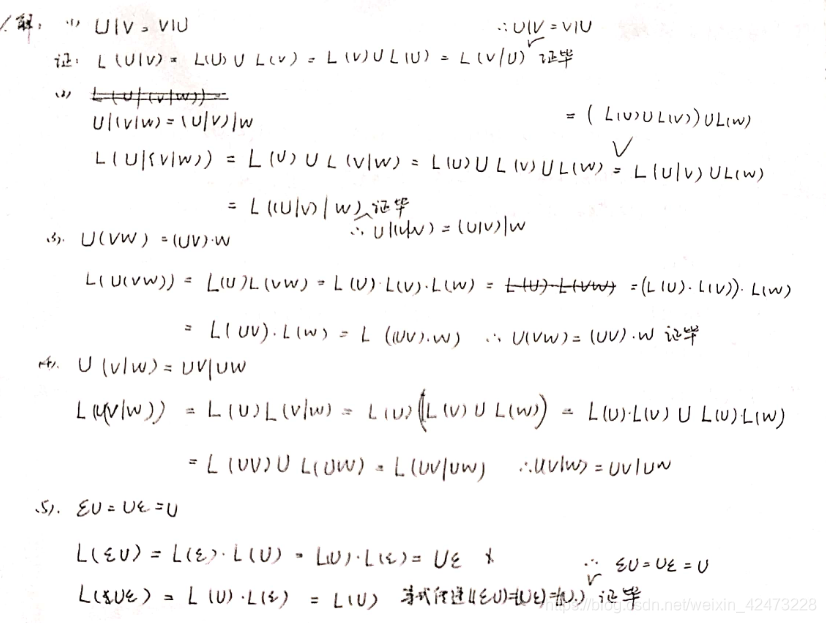 1.解: (1) U|V = V|U ∴U|V = V|U
证: L(U|V) = L(U) U L(V) = L(V) U L(U) = L(V|U) 证毕
(2) L(U|(V|W)) =
U|(V|W) = (U|V)|W = (L(U) U L(V)) U L(W)
L(U|(V|W)) = L(U) U L(V|W) = L(U) U L(V) U L(W) = L(U|V) U L(W)
= L((U|V)|W) 证毕
∴ U|(V|W) = (U|V)|W
(3). U(VW) = (UV)·W
L(U(VW)) = L(U)L(VW) = L(U)·L(V)·L(W) = L(U)·L(VW) = (L(U)·L(V))·L(W)
= L(UV)·L(W) = L((UV)·W) ∴ U(VW) = (UV)·W 证毕
(4). U(V|W) = UV|UW
L(U(V|W)) = L(U)L(V|W) = L(U)(L(V) U L(W)) = L(U)·L(V) U L(U)·L(W)
= L(UV) U L(UW) = L(UV|UW) ∴U(V|W) = UV|UW
(5). εU = Uε = U
L(εU) = L(ε)·L(U) = L(U)·L(ε) = Uε ∴ εU = Uε = U
L(Uε) = L(U)·L(ε) = L(U) 等式传递(L(εU)=L(Uε)=L(U).) 证毕
https://blog.csdn.net/weixin_42473228